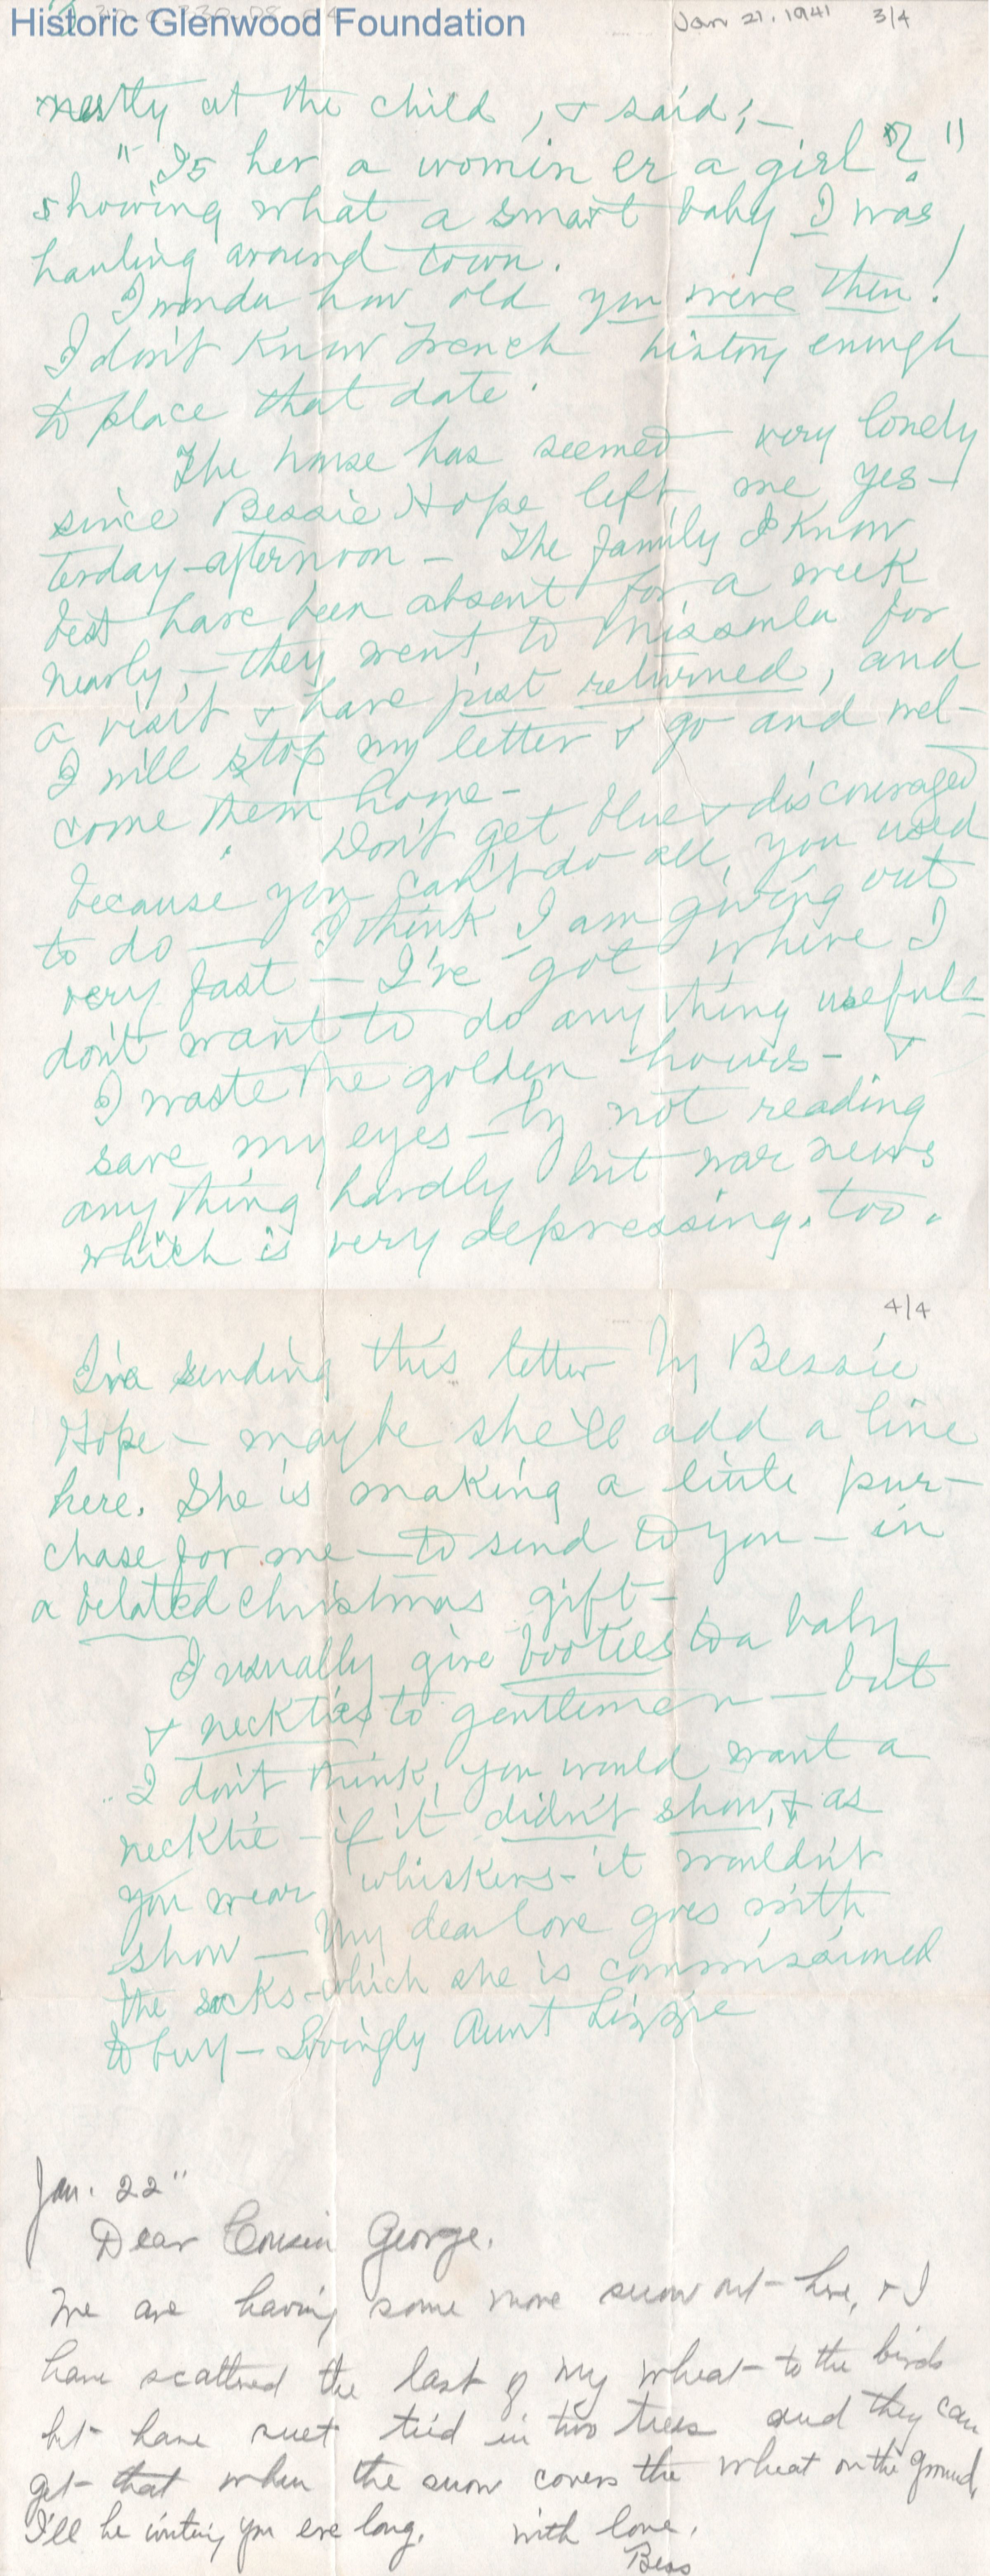 Historic Glenwood Foundation
Jan 21, 1941 3/4
at the child, & said;—
"Is her a womin er a girl?"
showing what a smart baby I was
hauling around town.
I wonder how old you were then!
I don't know French history enough
to place that date.
The house has seemed very lonely
since Bessie Hope left me yes-
terday-afternoon — The family I know
best have been absent for a week
nearly, — they went to Missoula for
a visit & have just returned, and
I will stop my letter & go and wel-
come them home —
Don't get blue & discouraged
because you can't do all you used
to do — I think I am giving out
very fast — I've got where I
don't want to do anything useful —
I waste the golden hours — &
save my eyes — by not reading
anything hardly but war news
which is very depressing, too.
4/4
I'm sending this letter by Bessie
Hope — maybe she'll add a line
here. She is making a little pur-
chase for me — to send to you — in
a belated christmas gift —
I usually give booties to a baby
& neckties to gentlemen — but
I don't think you would want a
necktie — if it didn't show, & as
you wear whiskers — it wouldn't
show — My dear love goes with
the socks — which she is commissioned
to buy — Lovingly Aunt Lizzie
Jan. 22"
Dear Cousin George.
We are having some more snow out here, & I
have scattered the last of my wheat to the birds
but have suet tied in two trees and they can
get that when the snow covers the wheat on the ground,
I'll be writing you ere long. with love,
Bess